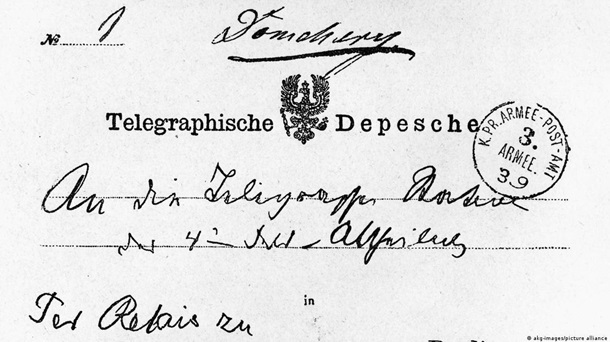 № 1 Donchery
Telegraphische Depesche
K. PR. ARMEE-POST-AMT
3.
ARMEE.
3 9
An die Telegraphen Station
der 4ten Feld-Abtheilung
in
Per Relais zu
© akg-images/picture alliance